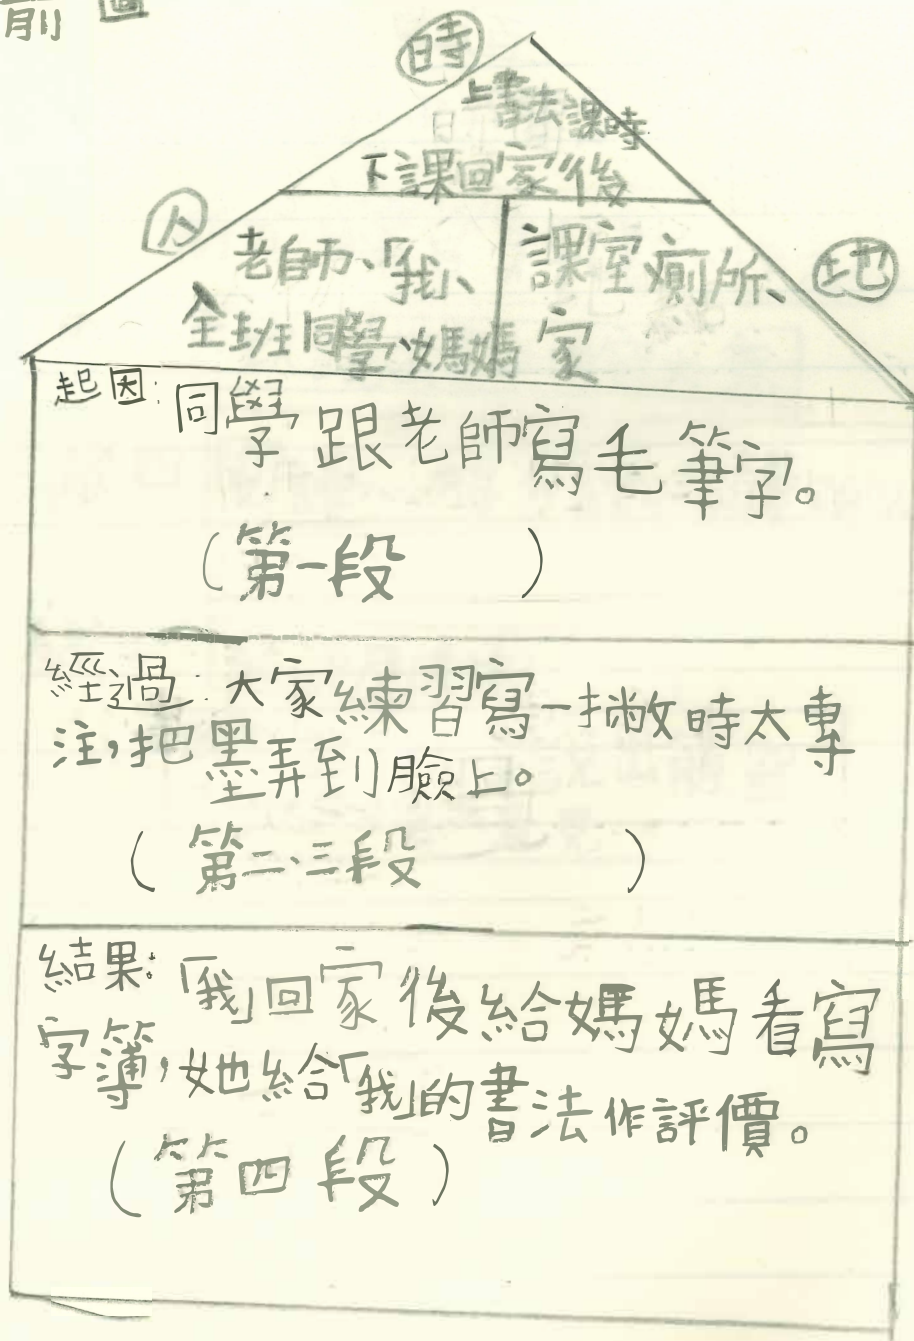 前圖
時
上書法課時
下課回家後
人
老師、「我」、
全班同學、媽媽
地
課室廁所、
家
起因:同學跟老師寫毛筆字。
(第一段)
經過:大家練習寫一撇時太專
注,把墨弄到臉上。
(第二、三段)
結果:「我」回家後給媽媽看寫
字簿,她給「我」的書法作評價。
(第四段)